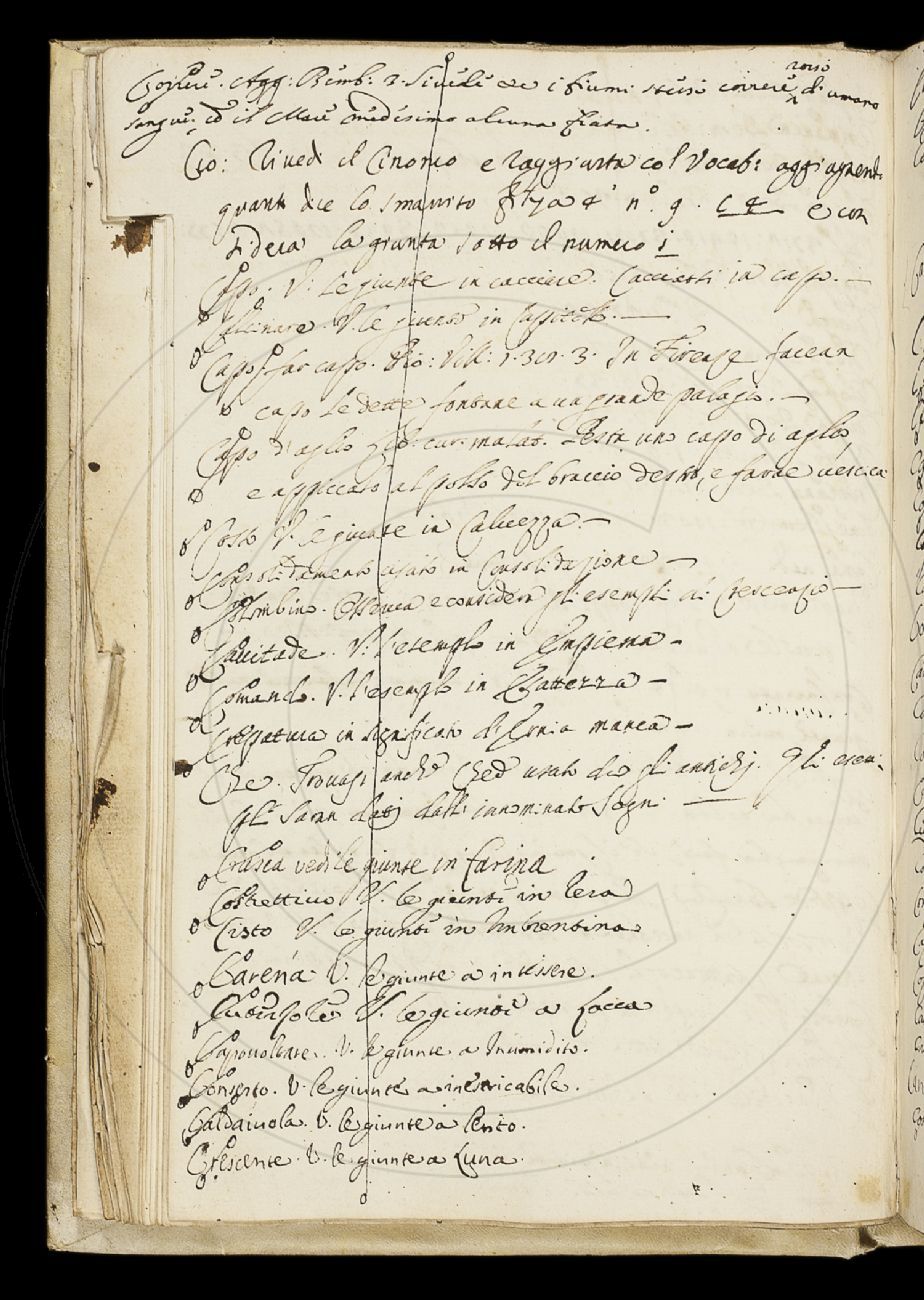 Agg: Bemb: 2. i fiumi stessi correre rossi di umano
sangue, ed il Mare medesimo alcuna fiata.
Cio: Rivedi il Cinonio e raggiusta col Vocab: aggiugnend.
quanto dice lo smarrito n.º 9. e con
sidera la giunta sotto il numero i
Capo. V. le giunte in cacciare. Cacciarsi in capo.
V. le giunte in
Capo, far capo. Gio: Vill: 1. 38. 3. In Firenze facean
capo le dette fontane a un grande palagio.
Capo d'aglio cur. malat. Pesta uno capo di aglio,
e appiccalo al polso del braccio destro, e faràe vescica
Costo V. le giunte in
Consolidamento usato in Consolidazione
Colombino. Osserva e considera gli esempli di Crescenzio
Cavitade. V. l'esemplo in Empiema
Comando. V. l'esemplo in
Crepatura in significato di Ernia manca
Che. Trovasi anche Ched usato da gli antichj. Gli esem-
pli saran datj dall' innominato Sogn.
Crusca vedi le giunte in farina
Costrettivo V. le giunte in Tera
Cisto V. le giunte in Imbrentina
Carena V. le giunte a intessere.
V. le giunte a Lacca
Capovoltare. V. le giunte a Inumidito.
Conserto. V. le giunte a inestricabile.
Caldaiuola. V. le giunte a lento.
Crescente. V. le giunte a Luna.